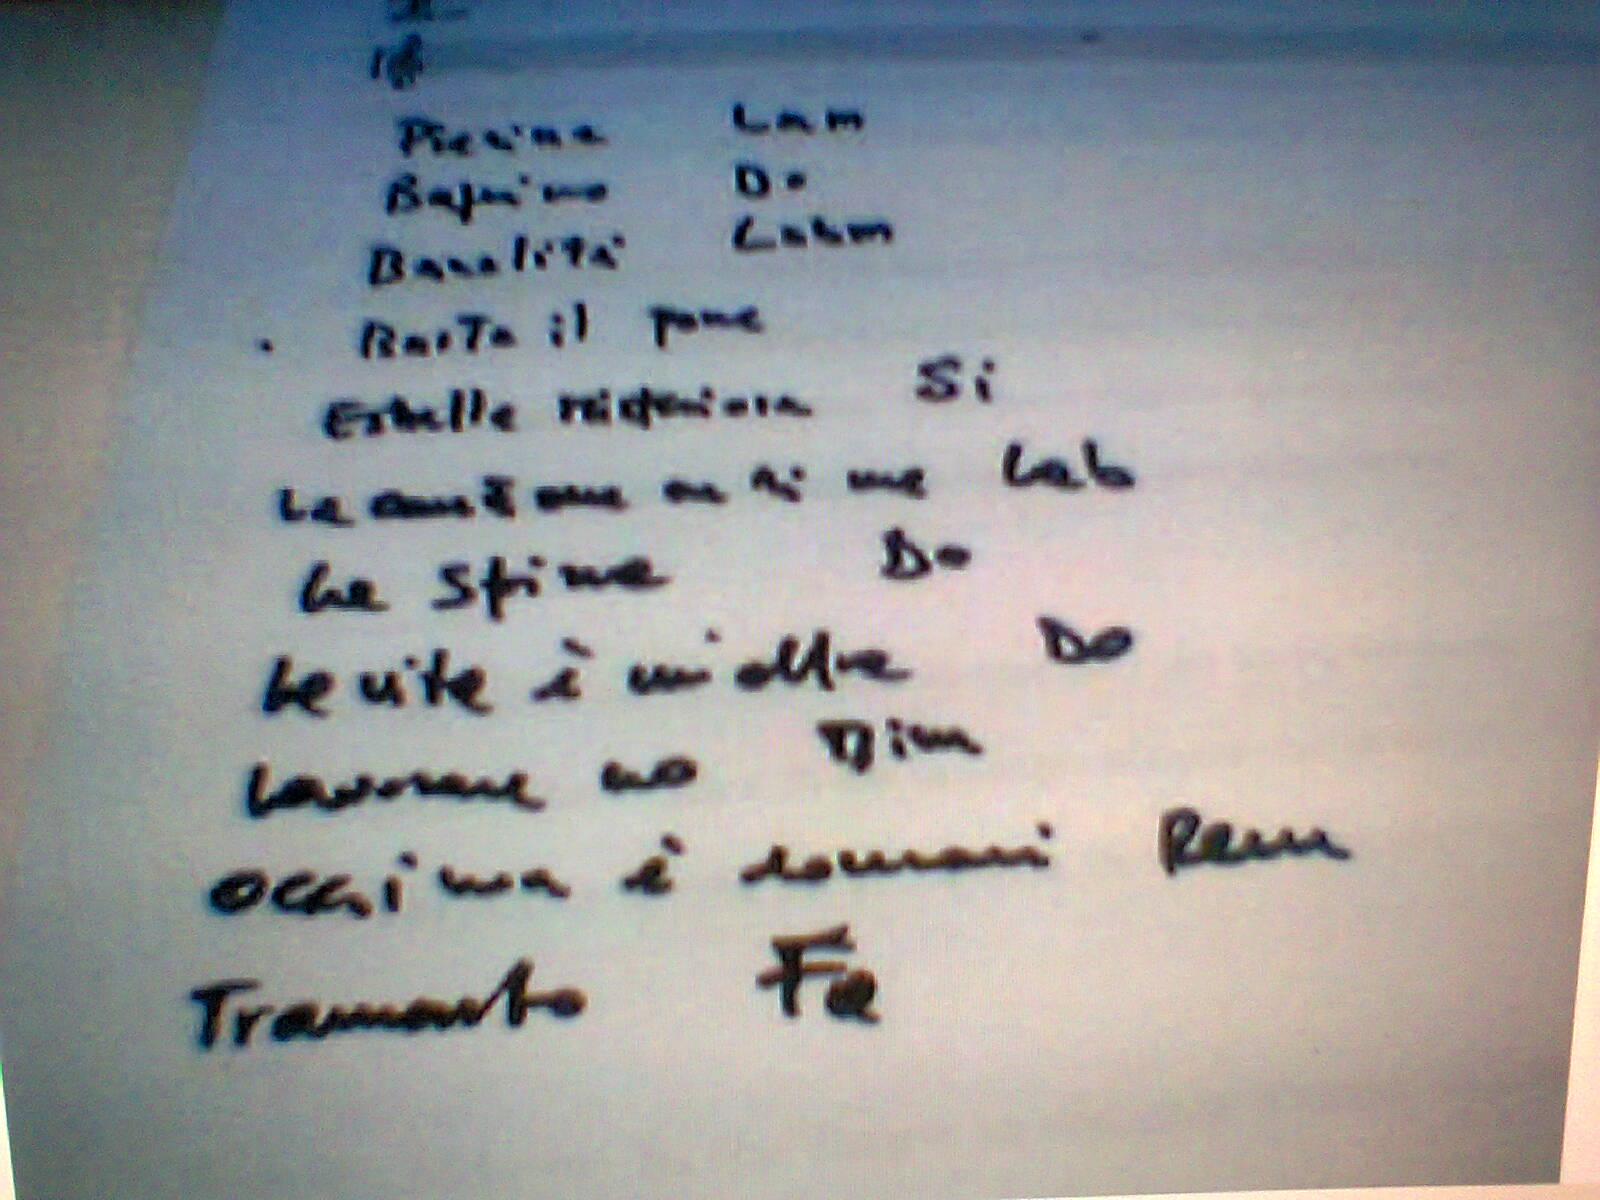 Pierina Lam
Bagnino Do
Banalità Labm
Basta il pane
Estelle misteriosa Si
La canzone Lab
La spina Do
La vita è un'altra Do
Lavorare no Dim
Occhi ma è domani Rem
Tramonto Fa